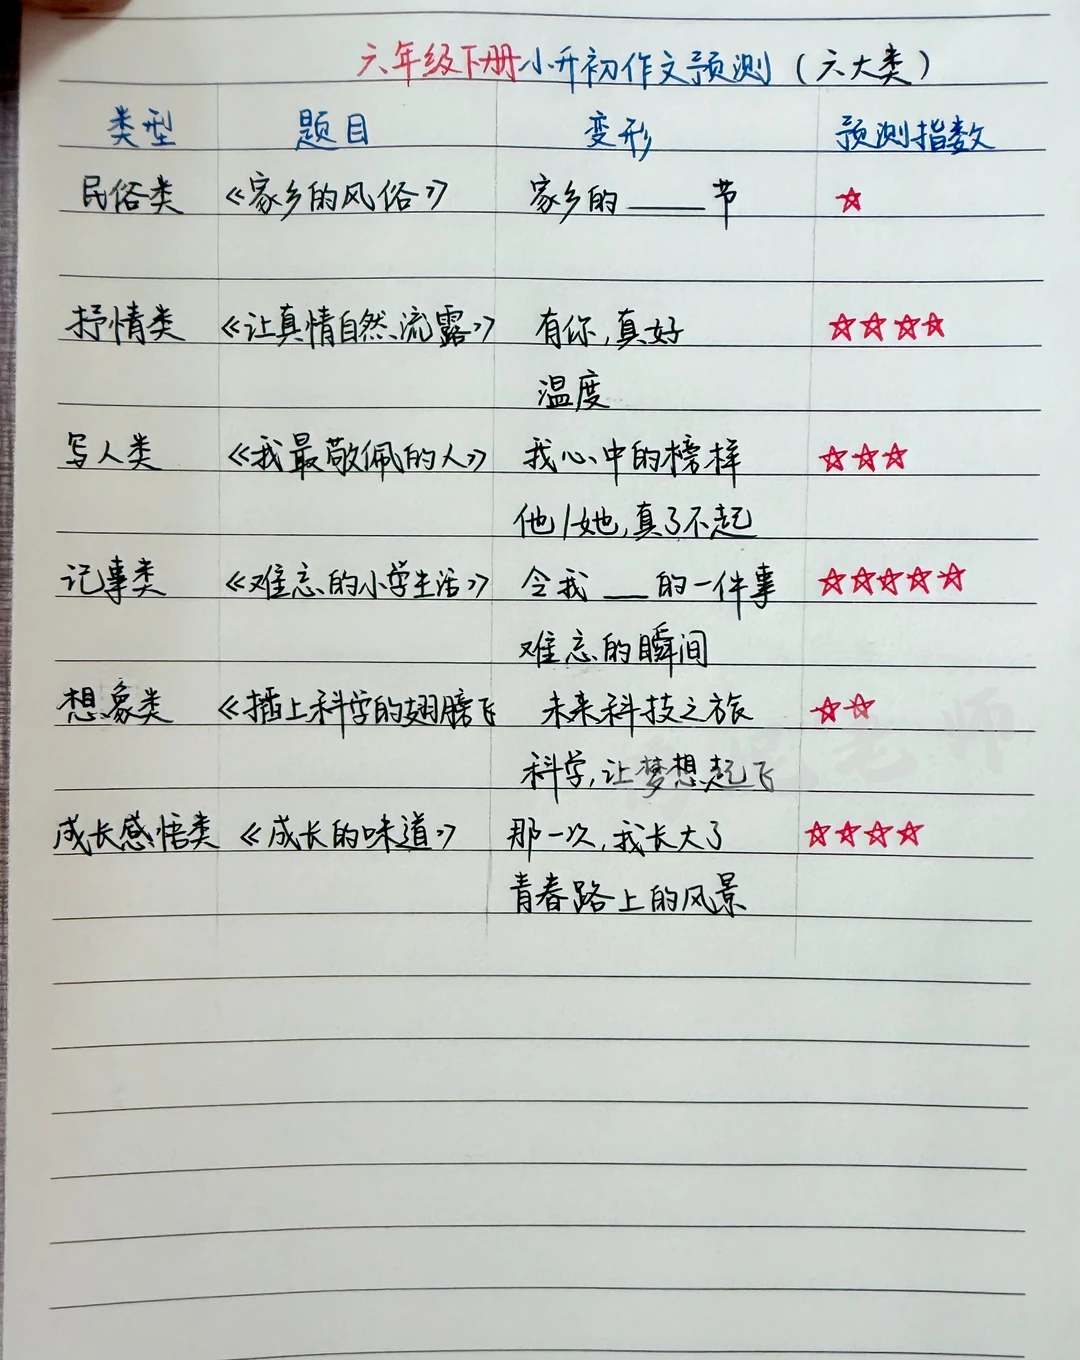 六年级下册小升初作文预测（六大类）
类型 题目 变形 预测指数
民俗类 《家乡的风俗》 家乡的____节 ☆
抒情类 《让真情自然流露》 有你,真好 ☆☆☆☆
温度
写人类 《我最敬佩的人》 我心中的榜样 ☆☆☆
他/她,真了不起
记事类 《难忘的小学生活》 令我___的一件事 ☆☆☆☆☆
难忘的瞬间
想象类 《插上科学的翅膀飞 未来科技之旅 ☆☆
科学,让梦想起飞
成长感悟类 《成长的味道》 那一次,我长大了 ☆☆☆☆
青春路上的风景
老师